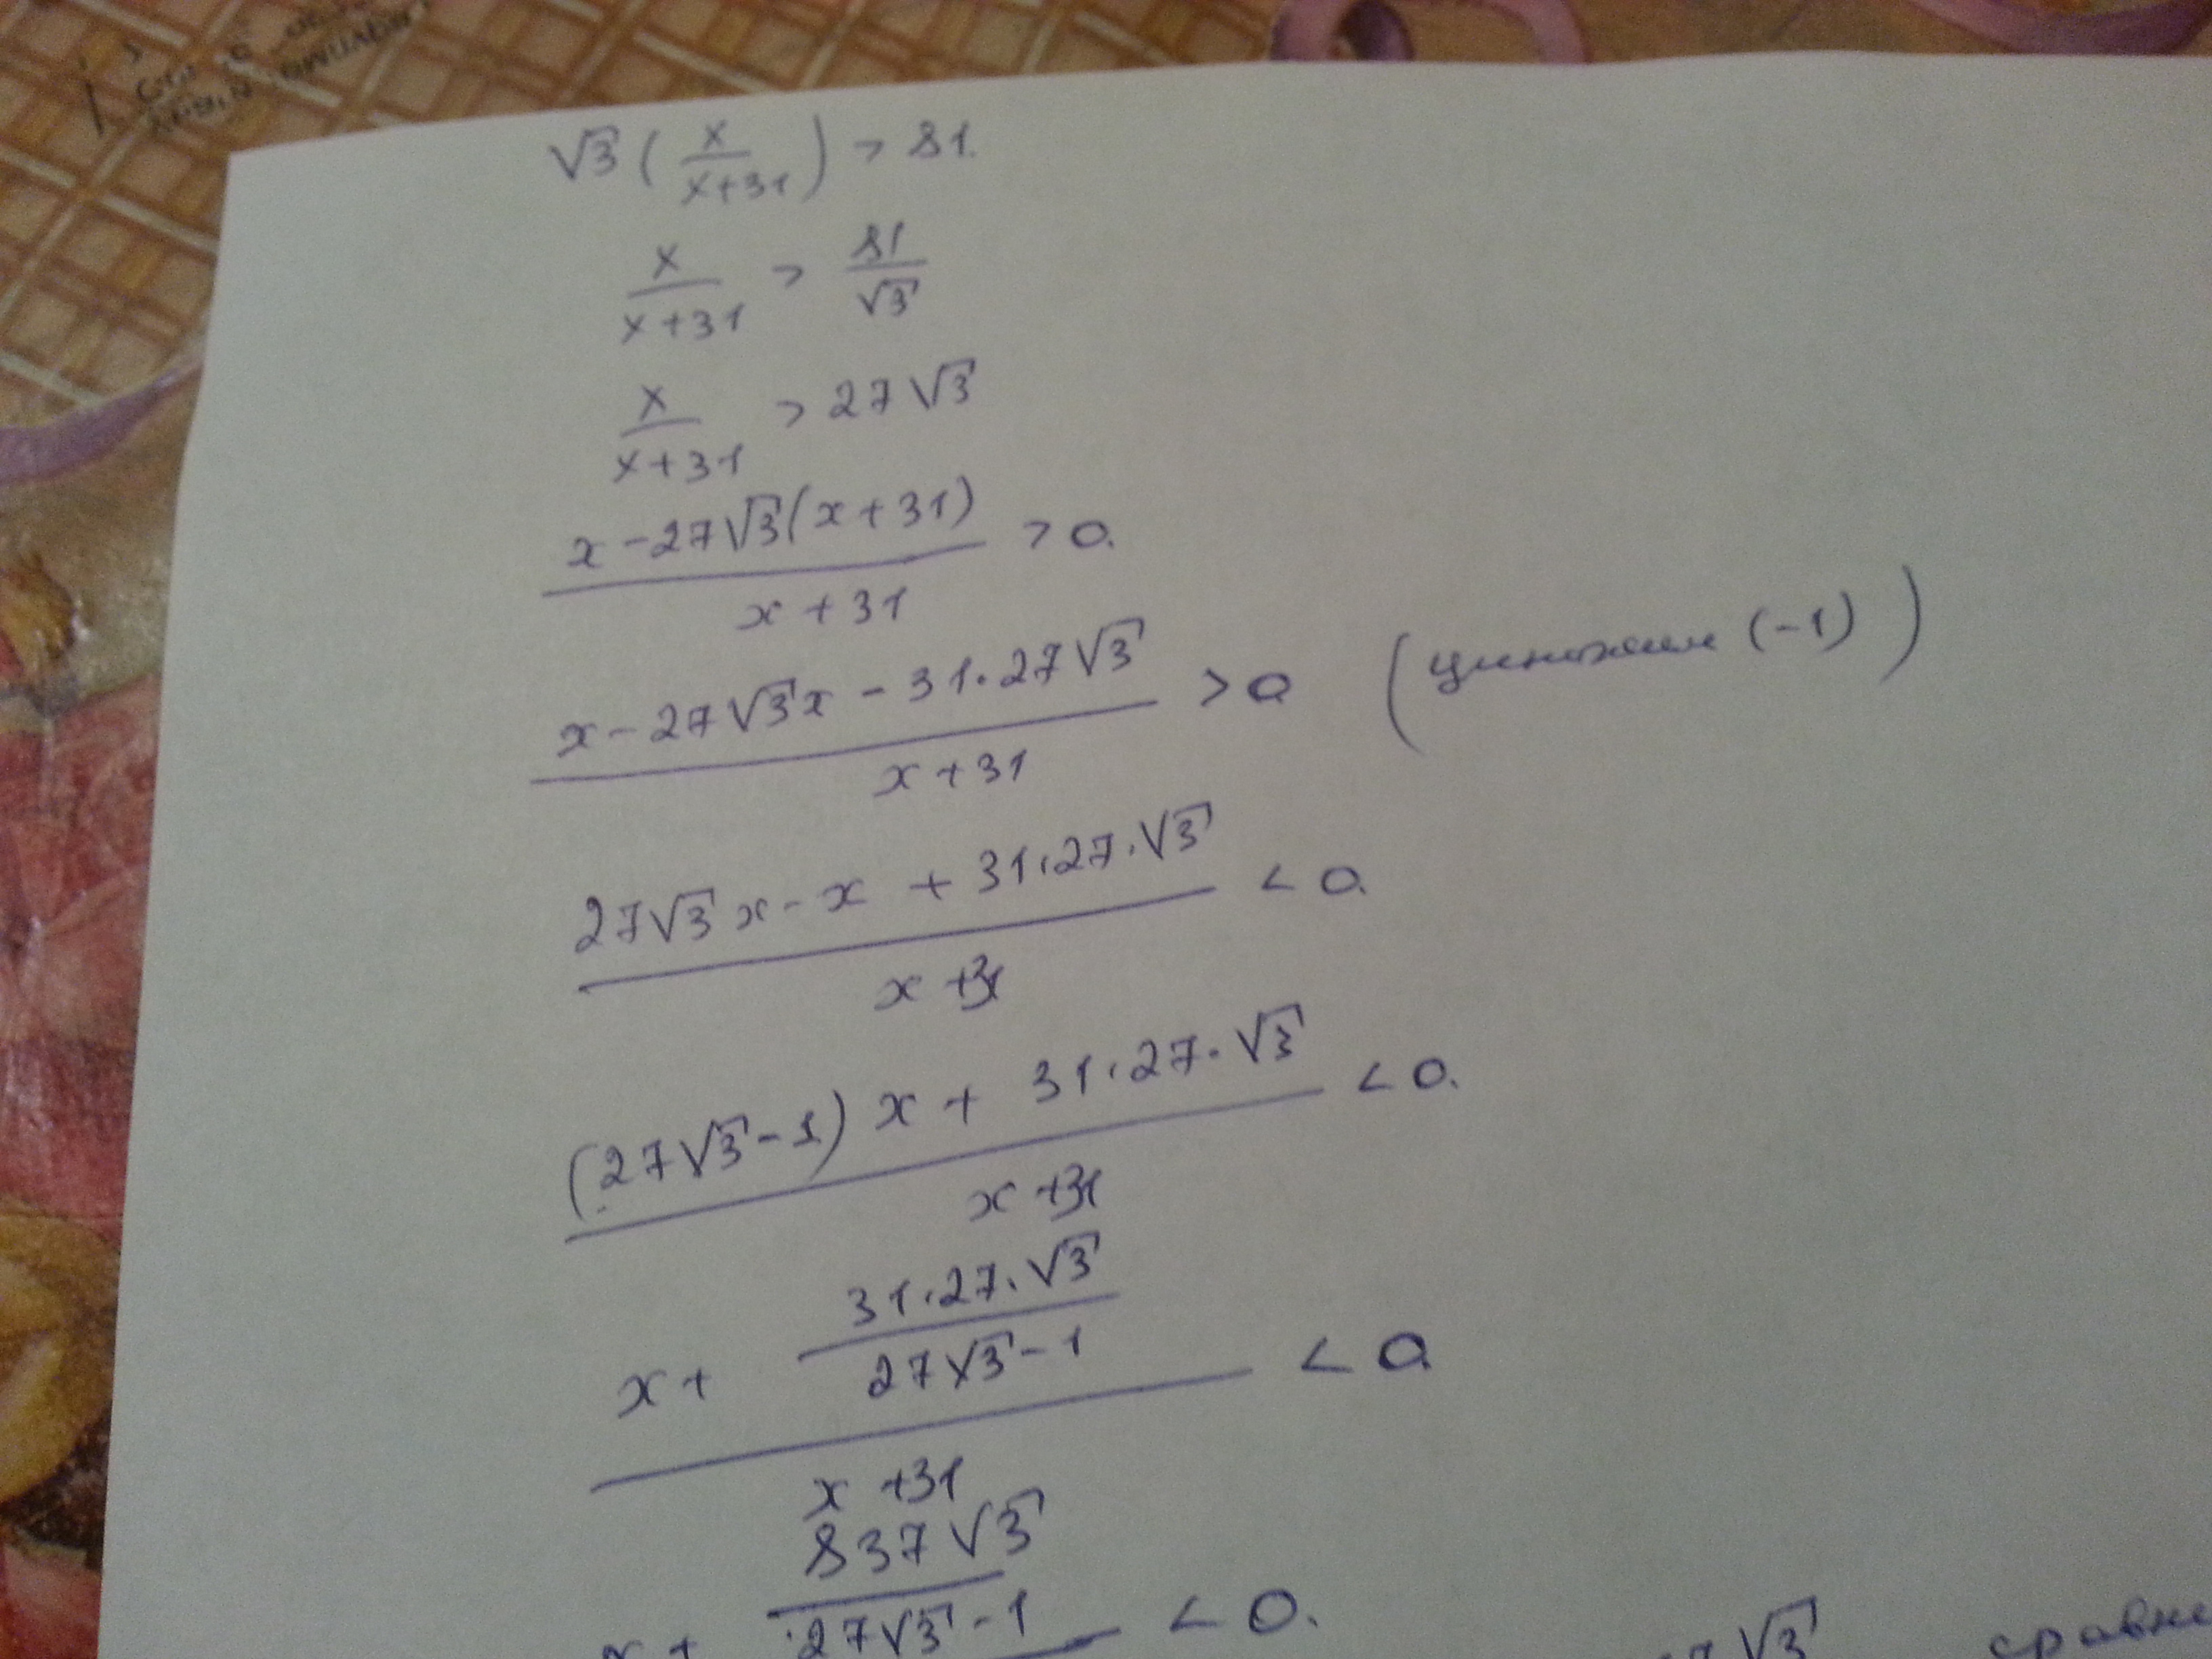 √3 ( x/(x+31) ) > 81.
x/(x+31) > 81/√3
x/(x+31) > 27√3
(x-27√3(x+31))/(x+31) > 0.
(x-27√3x-31·27√3)/(x+31) > 0 (умножим (-1))
(27√3x-x+31·27·√3)/(x+31) < 0.
((27√3-1)x+31·27·√3)/(x+31) < 0.
(x+(31·27·√3)/(27√3-1))/(x+31) < 0
x+(837√3)/(27√3-1) < 0.
7√3